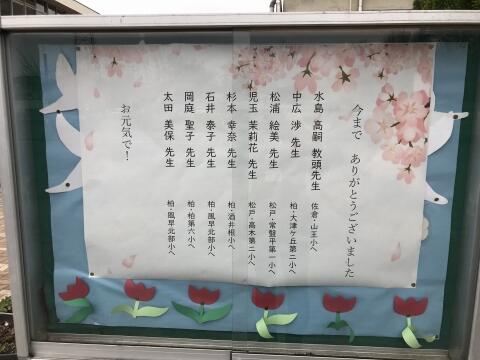 今まで ありがとうございました
水島 高嗣 教頭先生 佐倉・山王小へ
中広 渉 先生 柏・大津ケ丘第二小へ
松浦 絵美 先生 松戸・常盤平第一小へ
児玉 茉莉花 先生 松戸・高木第二小へ
杉本 幸奈 先生 柏・酒井根小へ
石井 泰子 先生 柏・風早北部小へ
岡庭 聖子 先生 柏・柏第六小へ
太田 美保 先生 柏・風早北部小へ
お元気で！